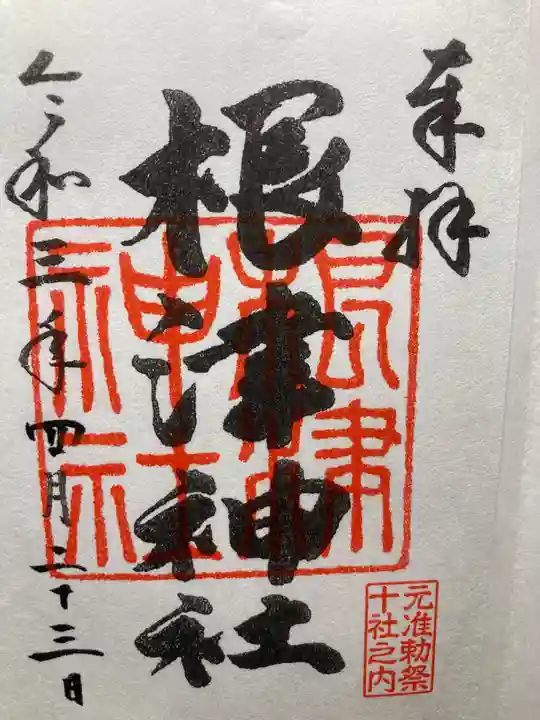 奉拝
根津神社
令和三年四月二十三日
根津神社
元准勅祭
十社之内